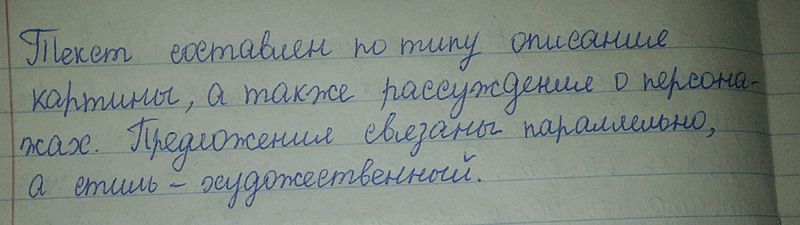 Текст составлен по типу описание
картины, а также рассуждение о персона-
жах. Предложения связаны параллельно,
а стиль – художественный.